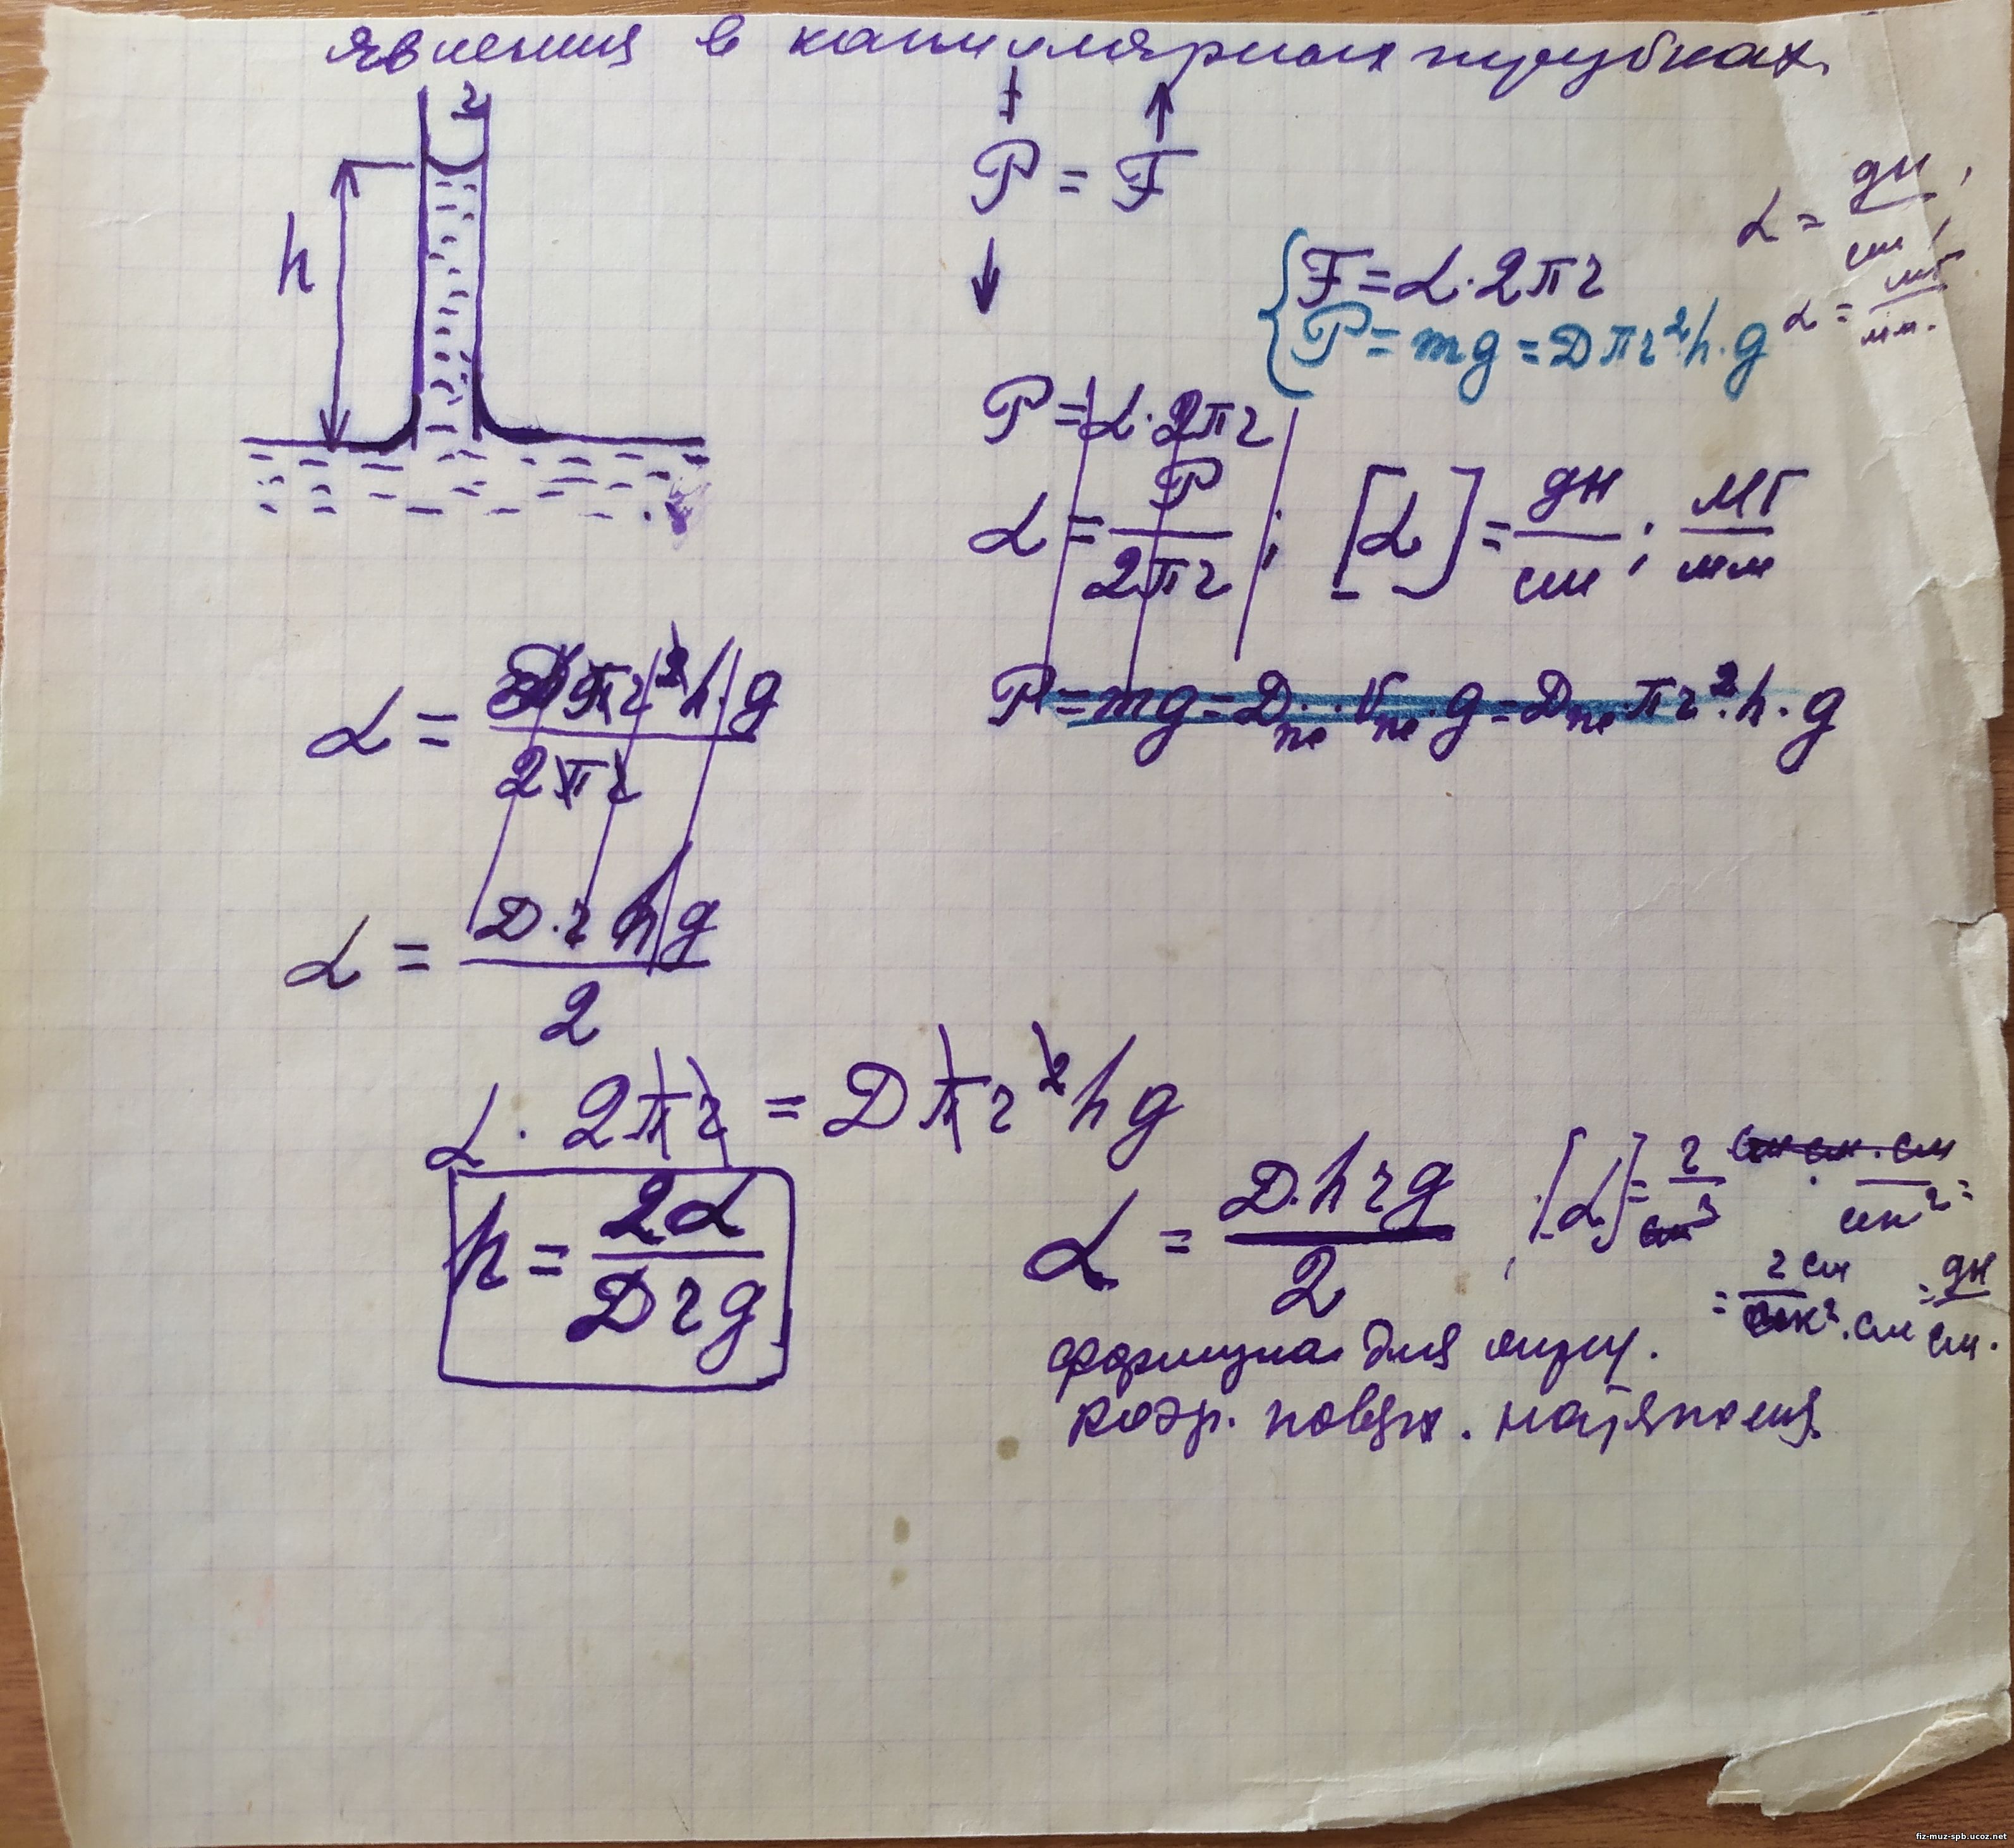 явления в капилярных трубках.
r
h
P = F
α = дн/см,
{ F = α · 2πr
P = mg = Dπr²h·g
α = мг/мм.
P = α · 2πr
α = P/2πr ; [α] = дн/см ; мг/мм
P = mg = Dж · Vж · g = Dж πr² · h · g
α = Dπr²h·g / 2πr
α = D·r h g / 2
α · 2πr = Dπr²hg
h = 2α / Drg
α = D·h r g / 2 , [α] = г/см³ · см см · см / сек² =
= г см / сек² · см = дн/см.
формула для опред.
коэф. поверх. натяжения.
fiz-muz-spb.ucoz.net